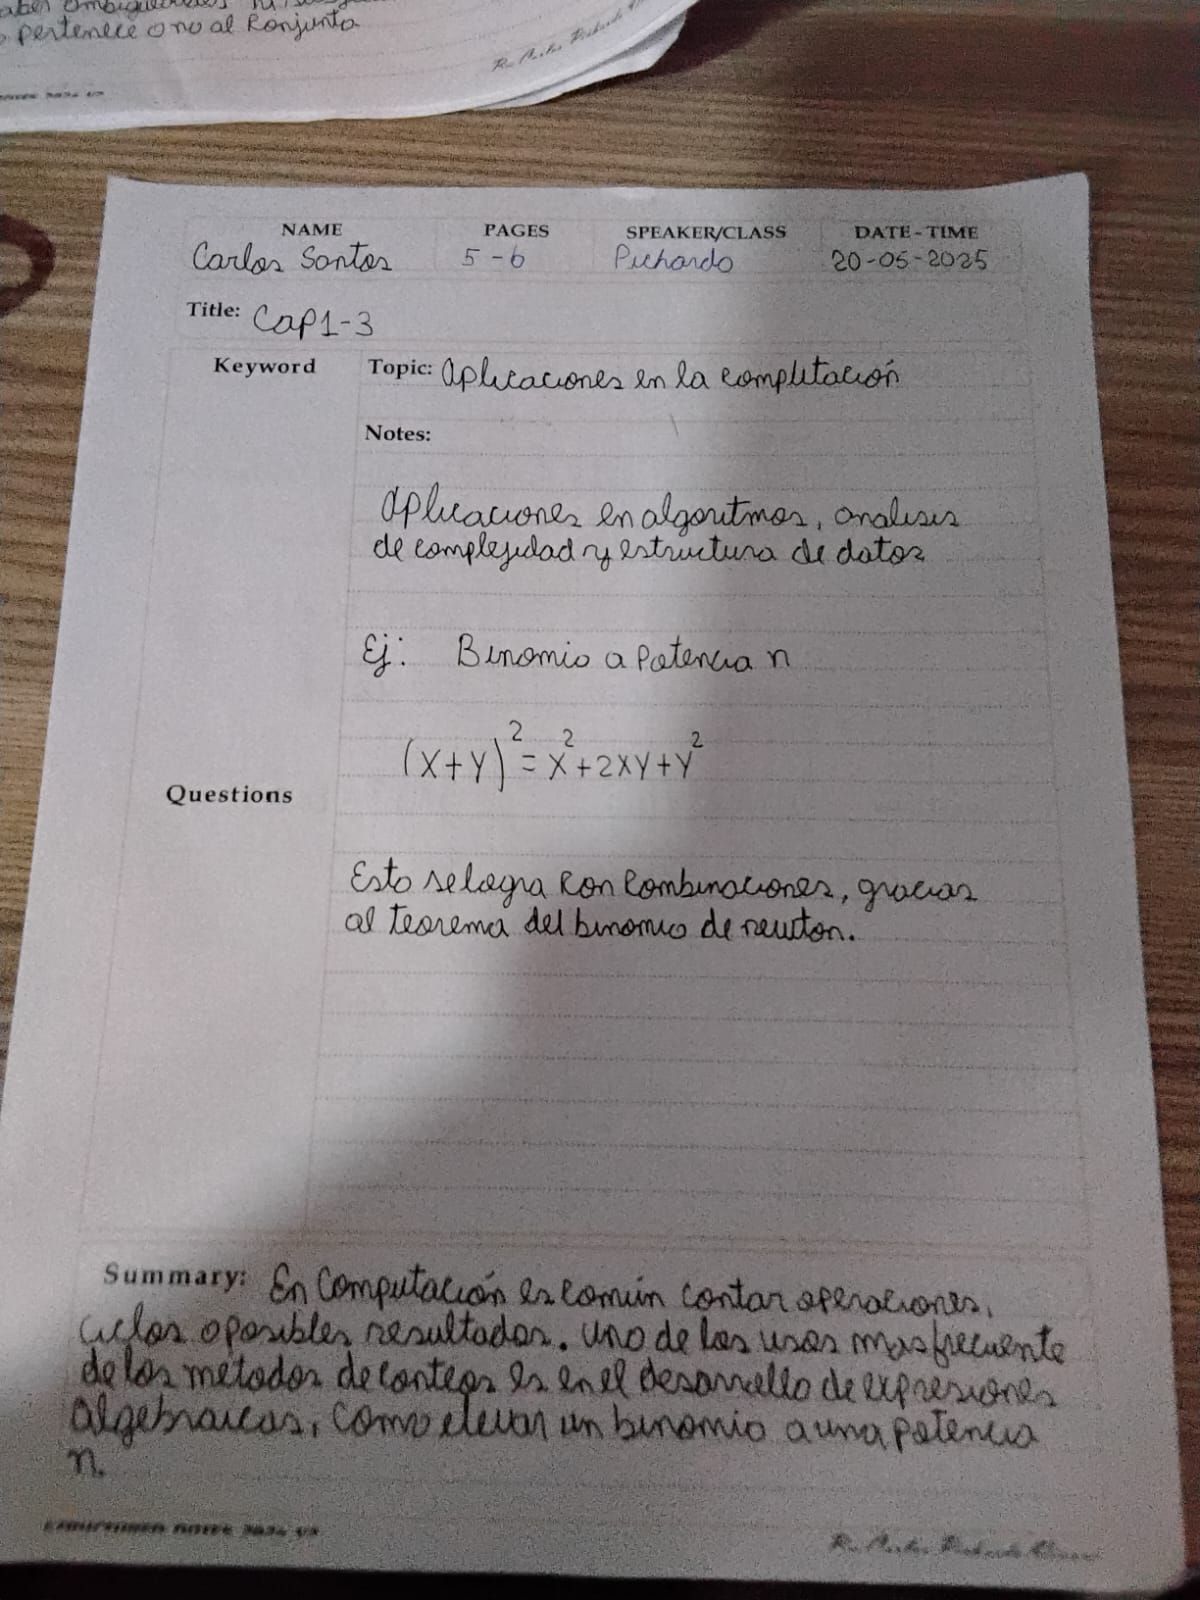 pertenece o no al Konjunto
NAME PAGES SPEAKER/CLASS DATE-TIME
Carlos Santos 5-6 Pichardo 20-05-2025
Title: Cap1-3
Keyword Topic: Aplicaciones en la computación
Notes:
Aplicaciones en algoritmos, analisis
de complejidad y estructura de datos
Ej: Binomio a potencia n
(X+Y)²=X²+2XY+Y²
Questions
Esto se logra con combinaciones, gracias
al teorema del binomio de newton.
Summary: En Computación es común contar operaciones,
ciclos o posibles resultados. uno de los usos mas frecuente
de los metodos de conteos es en el desarrollo de expresiones
algebraicas, como elevar un binomio a una potencia
n.